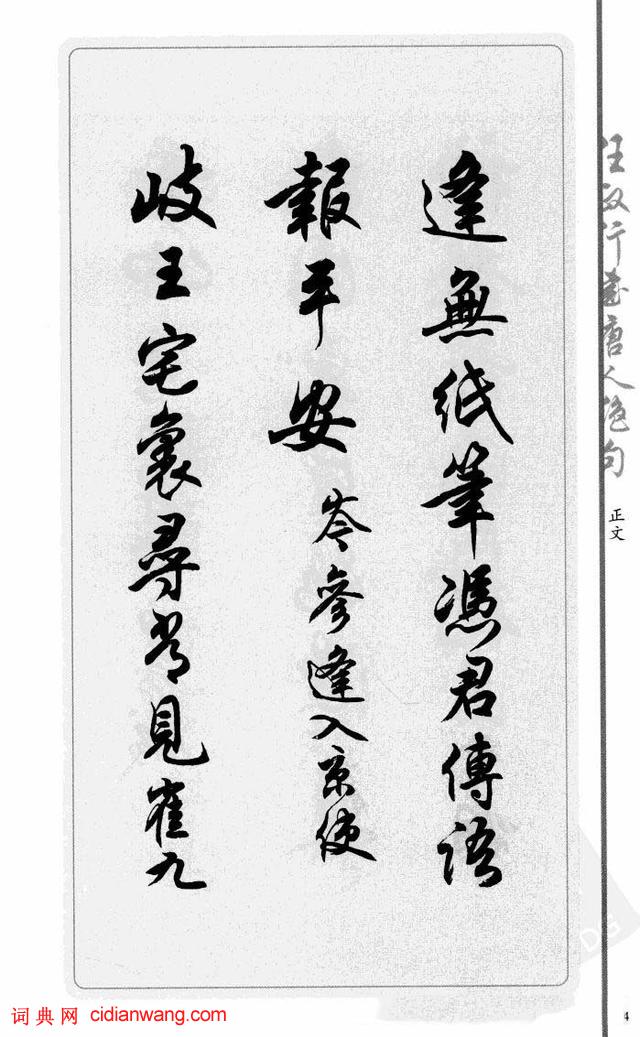 逢無紙筆憑君傳語
報平安岑參逢入京使
岐王宅裏尋常見崔九
任政行書唐人絕句
正文
4
词典网 cidianwang.com
DG